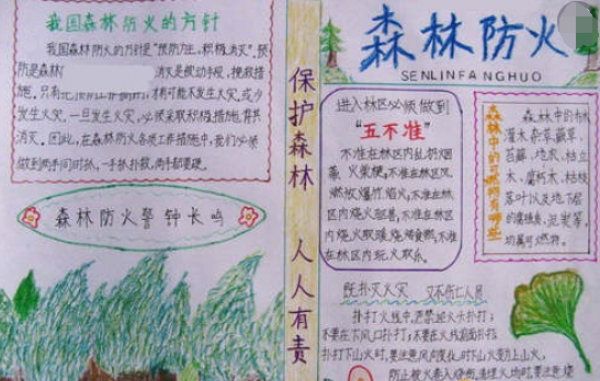 我国森林防火的方针
我国森林防火的方针是"预防为主,积极消灭"。预
防是森林 消灭是被动手段,挽救措
施。只有把预防工作搞好,才有可能不发生火灾或少
发生火灾。一旦发生火灾,必须采取积极措施,将其
消灭。因此,在森林防火各项工作措施中,我们必须
做到两手同时抓,一手抓扑救,两手都要硬。
森林防火警钟长鸣
保护森林 人人有责
森林防火
SENLINFANGHUO
进入林区必须做到
"五不准"
不准在林区内乱扔烟
蒂、火柴梗,不准在林区
燃放爆竹、焰火,不准在林区
内烧火驱兽,不准在林区
内烧火取暖烧烤食物,不准
在林区内玩火取乐。
森林中的可燃物有哪些
森林中的
灌木杂草、蕨草、
苔藓、地衣、枯立
木、腐朽木、枯枝
落叶以及地下层
的腐殖质、泥炭等,
均属可燃物。
既扑灭火灾 又不伤亡人员
扑打火线中,严禁迎火头扑打;
不要在下风口扑打;不要在火线前面扑打;
扑打下山火时,要注意风向变化,时下山火变为上山火,
防止被火卷入烧伤,清理火场时,要注意烧